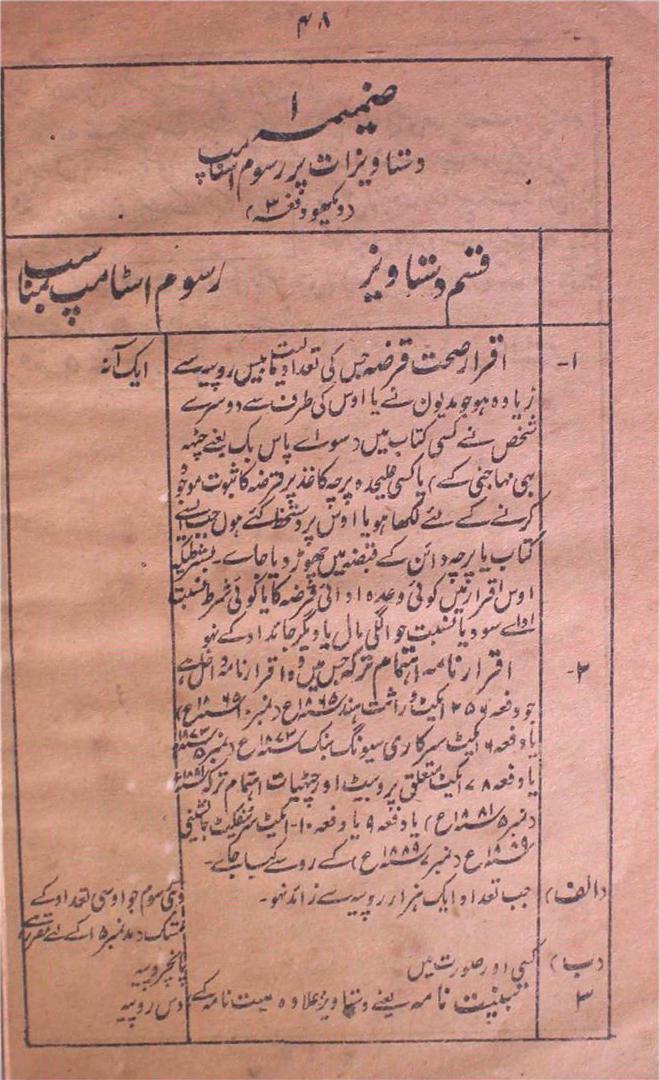 ۴۸
ضمیمہ ۱
دستاویزات پر رسوم اسٹامپ
(دیکھو دفعہ ۳)
قسم دستاویز
رسوم اسٹامپ مناسب
۱- اقرار صحت قرضہ جس کی تعداد یا مالیت بیس روپیہ سے
ایک آنہ
زیادہ ہو جو مدیون نے یا اوس کی طرف سے دوسرے
شخص نے کسی کتاب میں (سوائے پاس بک یعنے چٹھہ
بہی مہاجنی کے) یا کسی علیحدہ پرچہ کاغذ پر قرضہ کا ثبوت موجود
کرنے کے لئے لکھا ہو یا اوس پر دستخط کئے ہوں جب ایسے
کتاب یا پرچہ دائن کے قبضہ میں چھوڑ دیا جاے۔ بشرطیکہ
اوس اقرار میں کوئی وعدہ ادائی قرضہ کا یا کوئی شرط نسبت
اداے سود یا نسبت حوالگی مال یا دیگر جائداد کے نہو
۲- اقرار نامہ اہتمام ترکہ جس میں وہ اقرار نامہ داخل ہے
جو دفعہ ۲۵۶ ایکٹ وراثت ہند ۱۸۶۵ع (نمبر ۱۰ ۱۸۶۵ع)
یا دفعہ ۶ ایکٹ سرکاری سیونگ بنک ۱۸۷۳ع (نمبر ۵ ۱۸۷۳ع)
یا دفعہ ۷۸ ایکٹ متعلق پروبیٹ اور چٹھیات اہتمام ترکہ ۱۸۸۱ع
(نمبر ۵ ۱۸۸۱ع) یا دفعہ ۹ یا دفعہ ۱۰- ایکٹ سرٹیفکیٹ جانشینی
۱۸۸۹ع (نمبر ۷ ۱۸۸۹ع) کے روسے کیا جاے۔
(الف) جب تعداد ایک ہزار روپیہ سے زائد نہو۔
وہی رسوم جو اوسی تعداد کے
تمسک (مد نمبر ۱۵) کے لئے مقرر ہے
(ب) کسی اور صورت میں
پانچروپیہ
۳ تبنیت نامہ یعنے دستاویز (علاوہ وصیت نامہ کے)
دس روپیہ